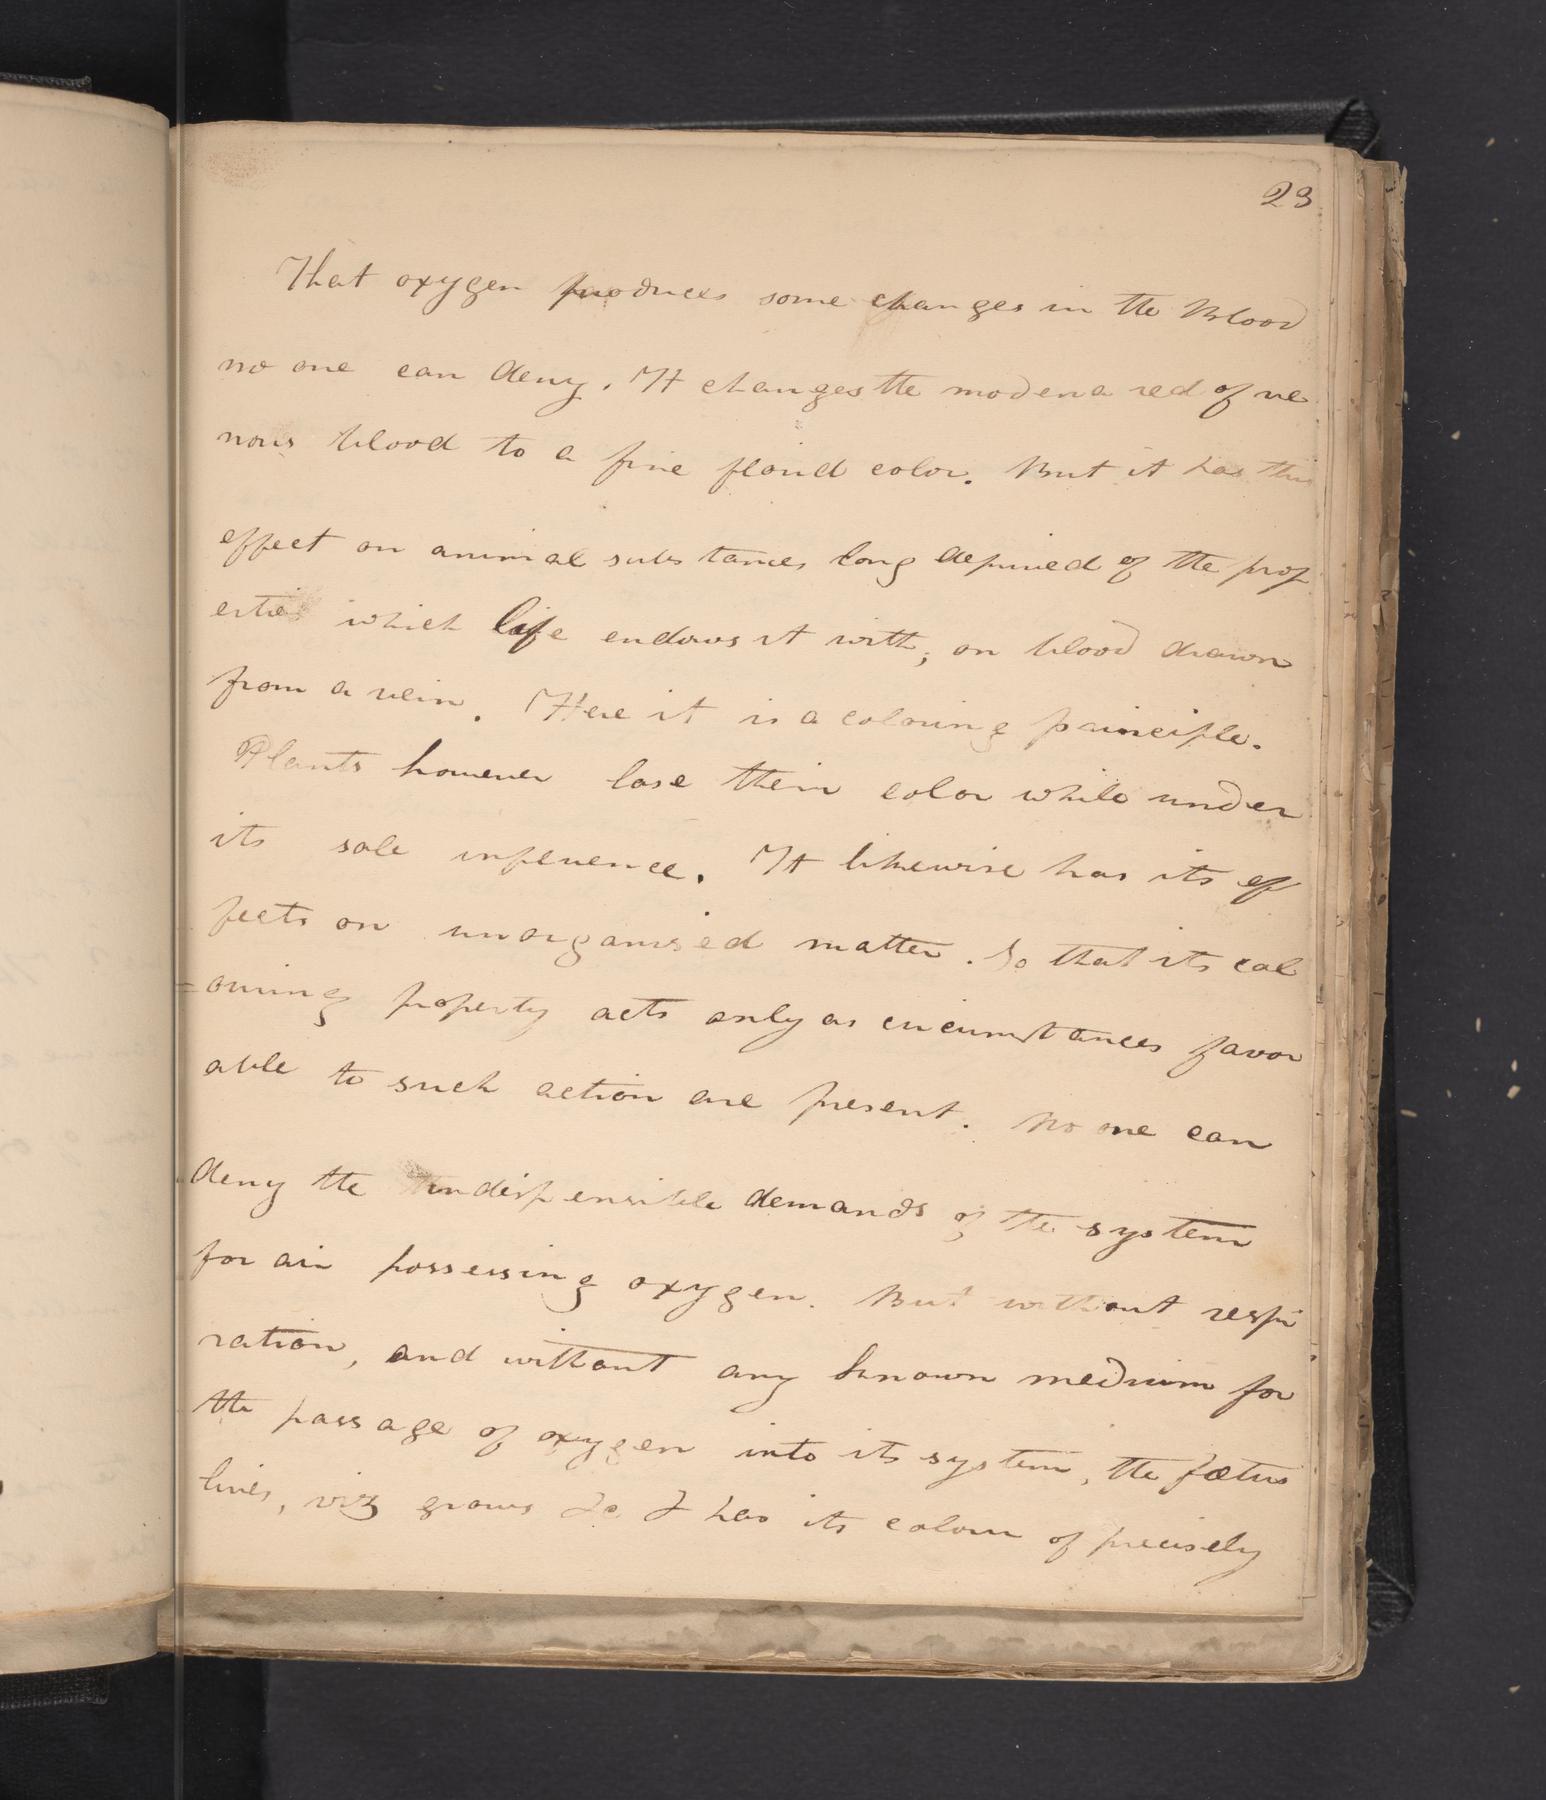 23
That oxygen produces some changes in the Blood
no one can deny. It changes the modena red of ve
nous blood to a fine florid color. But it has this
effect on animal substances long deprived of the prop
erties which life endows it with; on blood drawn
from a vein. Here it is a coloring principle.
Plants however lose their color while under
its sole influence. It likewise has its ef
fects on unorganised matter. So that its col
=ouring property acts only as circumstances favor
able to such action are present. No one can
deny the indispensible demands of the system
for air possessing oxygen. But without respi
ration, and without any known medium for
the passage of oxygen into its system, the fœtus
lives, viz grows &c & has its colour of precisely